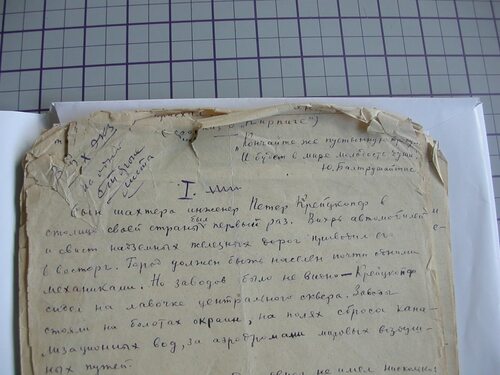 В 2х экз
На одной
стороне
листа
"Кончайте же пустынную
И будет в мире
Ю. Балтрушайтис
I.
Сын шахтера инженер Петер Крейцкопф в
столице своей страны был первый раз. Вихрь автомобилей и
и свист надземных железных дорог приводил его
в восторг. Город должен быть населен почти одними
механиками. Но заводов было не видно — Крейцкопф
сидел на лавочке центрального сквера. Заводы
стояли на болотах окраин, на полях сброса кана-
лизационных вод, за аэродромами мировых воздуш-
ных путей.
не имел